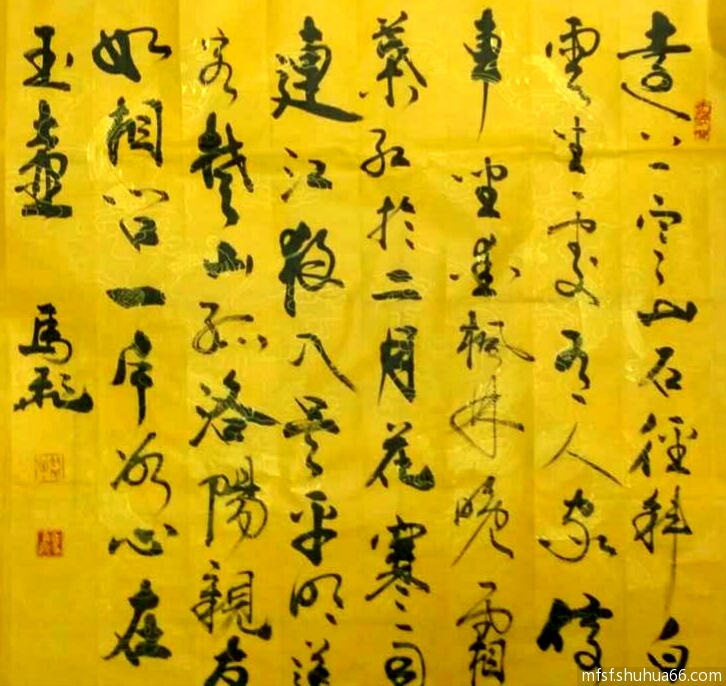 遠上寒山石徑斜白
雲生處有人家停
車坐愛楓林晚霜
葉紅於二月花寒雨
連江夜入吳平明送
客楚山孤洛陽親友
如相問一片冰心在
玉壺 馬
mfsf.shuhua66.com